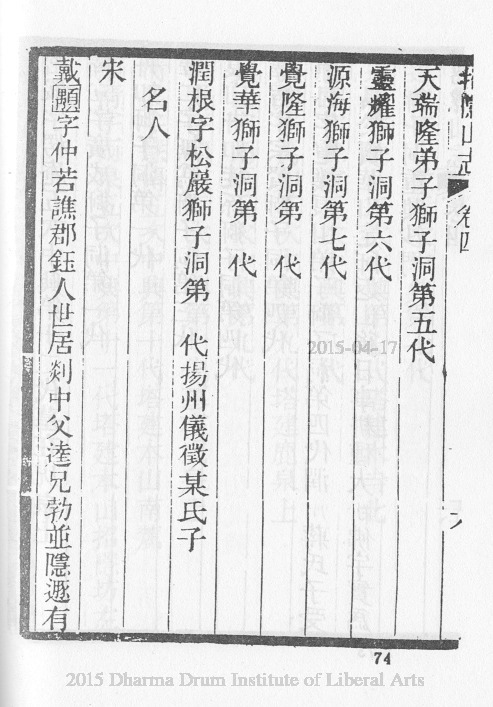 招隱山志 卷四
天瑞隆弟子獅子洞第五代
靈耀獅子洞第六代
源海獅子洞第七代
覺隆獅子洞第 代
覺華獅子洞第 代
潤根字松巖獅子洞第 代揚州儀徵某氏子
名人
宋
戴顒字仲若譙郡銍人世居剡中父逵兄勃並隱遯有
2015-04-17
74
2015 Dharma Drum Institute of Liberal Arts